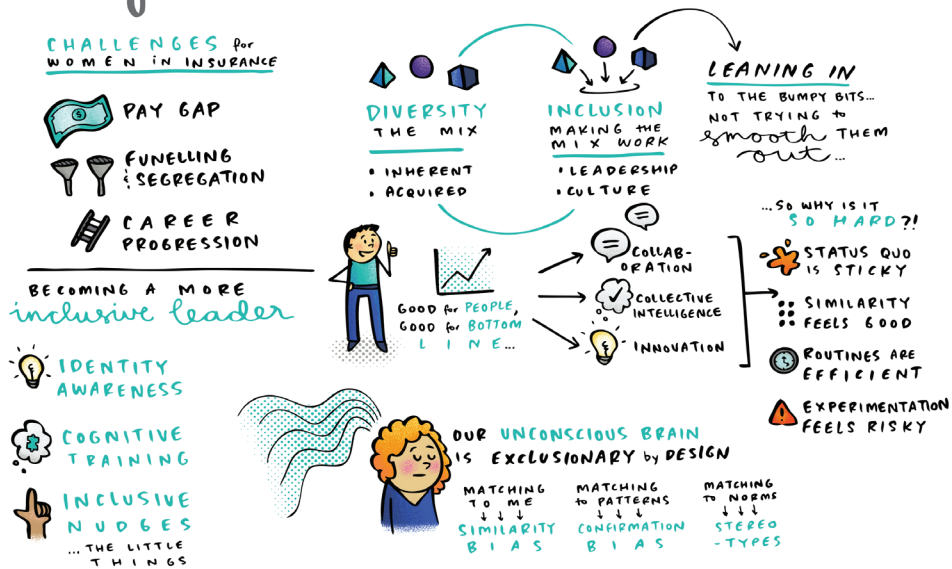 CHALLENGES for
WOMEN in INSURANCE
$
PAY GAP
FUNELLING
& SEGREGATION
CAREER
PROGRESSION
BECOMING A MORE
inclusive leader
IDENTITY
AWARENESS
COGNITIVE
TRAINING
INCLUSIVE
NUDGES
...THE LITTLE
THINGS
DIVERSITY
THE MIX
• INHERENT
• ACQUIRED
INCLUSION
MAKING the
MIX WORK
• LEADERSHIP
• CULTURE
LEANING IN
TO THE BUMPY BITS...
NOT TRYING to
smooth THEM
out...
GOOD for PEOPLE,
GOOD for BOTTOM
LINE...
COLLAB-
ORATION
COLLECTIVE
INTELLIGENCE
INNOVATION
...SO WHY IS IT
SO HARD?!
STATUS QUO
IS STICKY
SIMILARITY
FEELS GOOD
ROUTINES ARE
EFFICIENT
EXPERIMENTATION
FEELS RISKY
OUR UNCONSCIOUS BRAIN
IS EXCLUSIONARY by DESIGN
MATCHING
TO ME
SIMILARITY
BIAS
MATCHING
to PATTERNS
CONFIRMATION
BIAS
MATCHING
TO NORMS
STEREO
-TYPES